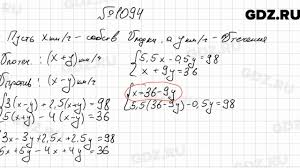 GDZ.RU
№1094
Пусть x км/ч - собств лодки, а y км/ч - течения
По теч.: (x+y) км/ч
Против: (x-y) км/ч
{3(x-y)+2,5(x+y)=98
5(x+y)-4(x-y)=36
3x-3y+2,5x+2,5y=98
5x+5y-4x+4y=36
{5,5x-0,5y=98
x+9y=36
{x=36-9y
5,5(36-9y)-0,5y=98
GDZ.RU